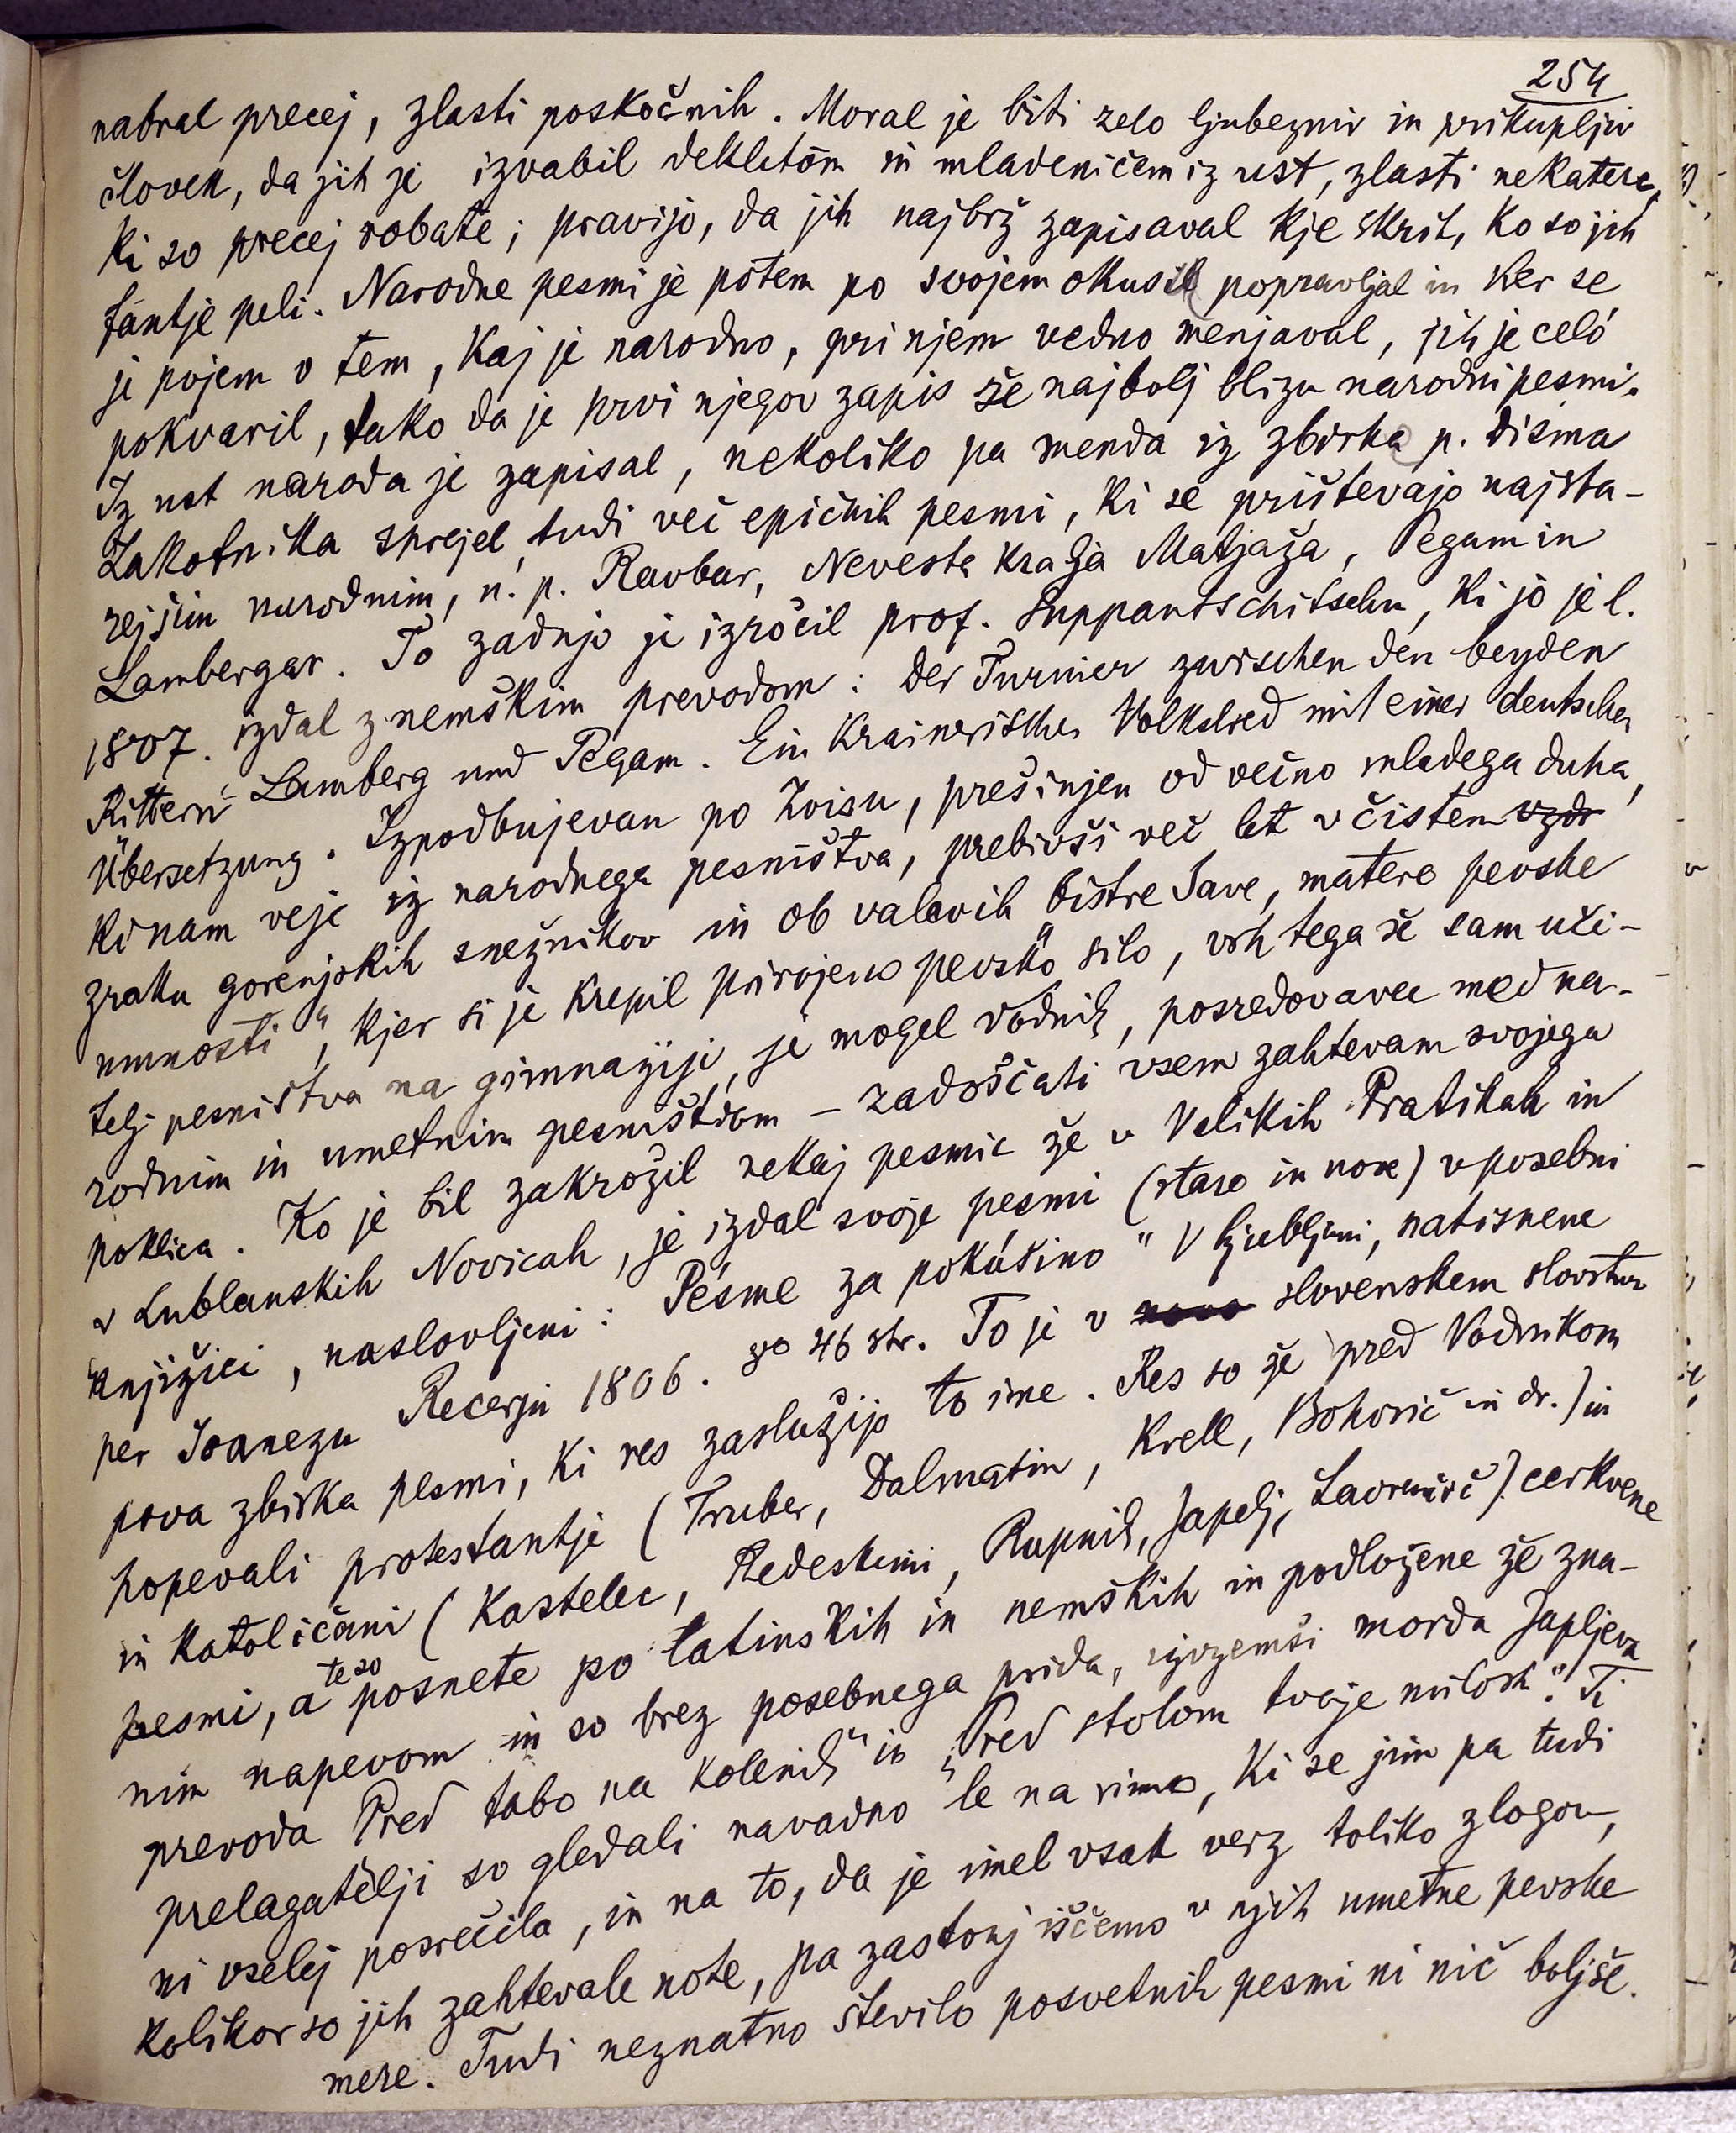 254
nabral precej, zlasti poskočnih. Moral je biti zelo ljubezniv in prikupljiv
človek, da jih je izvabil dekletóm in mladeničem iz ust, zlasti nekatere,
ki so precej robate; pravijo, da jih najbrž zapisaval kje skrit, ko so jih
fántje peli. Narodne pesmi je potem po svojem okusu popravljal in ker se
je pojem o tem, kaj je narodno, pri njem vedno menjaval, jih je celó
pokvaril, tako da je prvi njegov zapis še najbolj blizu narodni pesmi.
Iz ust naroda je zapisal, nekoliko pa menda iz zbirke p. Dizma
Zakotnika sprejel, tudi več epičnih pesmi, ki se prištevajo najsta-
rejšim narodnim, n. p. Ravbar, Nevesta kralja Matjaža, Pegam in
Lambergar. To zadnjo je izročil prof. Suppantschitschu, ki jo je l.
1807. izdal z nemškim prevodom: Der Turnier zwischen den beyden
Rittern Lamberg und Pegam. Ein krainerisches Volkslied mit einer deutschen
Übersetzung. Izpodbujevan po Zoisu, prešinjen od večno mladega duha,
ki nam veje iz narodnega pesništva, prebivši več let v čistem vzdr
zraku gorenjskih snežnikov in ob valovih "bistre Save, matere pevske
umnosti", kjer si je krepil prirojeno pevsko silo, vrh tega še sam uči-
telj pesništva na gimnaziji, je mogel Vodnik, posredovavec med na-
rodnim in umetnim pesništvom – zadoščati vsem zahtevam svojega
poklica. Ko je bil zakrožil nekaj pesmic že v Velikih Pratikah in
v Lublanskih Novicah, je izdal svoje pesmi (stare in nove) v posebni
knjižici, naslovljeni: Pésme za pokúšino" V Ljubljani, natisnene
per Joanezu Recerju 1806. 8º 46 str. To je v novo slovenskem slovstvu
prva zbirka pesmi, ki res zaslužijo to ime. Res so že pred Vodnikom
popevali protestantje (Truber, Dalmatin, Krell, Bohorič in dr.) in
in katoličani (Kastelec, Redeskini, Rupnik, Japelj, Lavrenčič) cerkvene
pesmi, a te so posnete po latinskih in nemških in podložene že zna-
nim napevom in so brez posebnega prida, izvzemši morda Japljeva
prevoda Pred tabo na kolenih" in „Pred stolom tvoje milosti". Ti
prelagatelji so gledali navadno le na rimo, ki se jim pa tudi
ni vselej posrečila, in na to, da je imel vsak verz toliko zlogov,
kolikor so jih zahtevale note, pa zastonj iščemo v njih umetne pevske
mere. Tudi neznatno število posvetnih pesmi ni nič boljše.